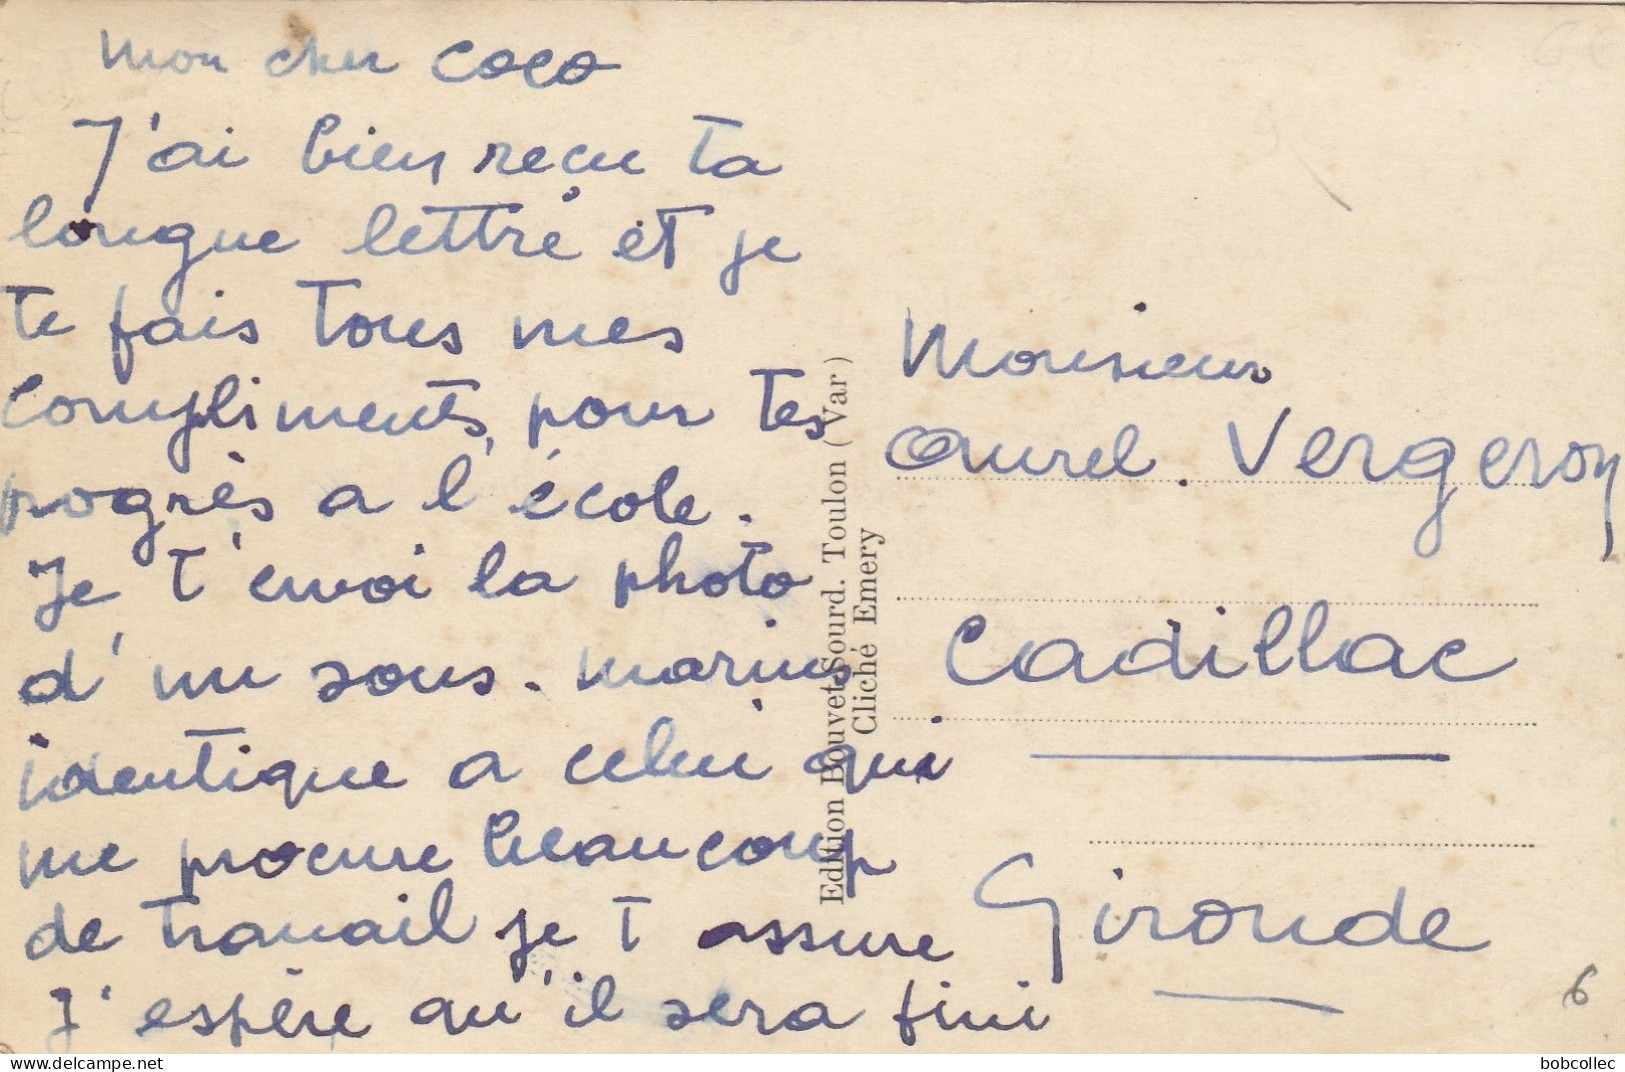 mon cher coco
J'ai bien reçu ta
longue lettre et je
te fais tous mes
compliments, pour tes
progrès a l'école.
Je t'envoi la photo
d'un sous. marins
identique a celui qui
me procure beaucoup
de travail je t assure
J'espère qu'il sera fini
Edition Bouvet-Sourd. Toulon (Var)
Cliché Emery
Monsieur
Aurel. Vergeron
Cadillac
Gironde
6
bobcollec